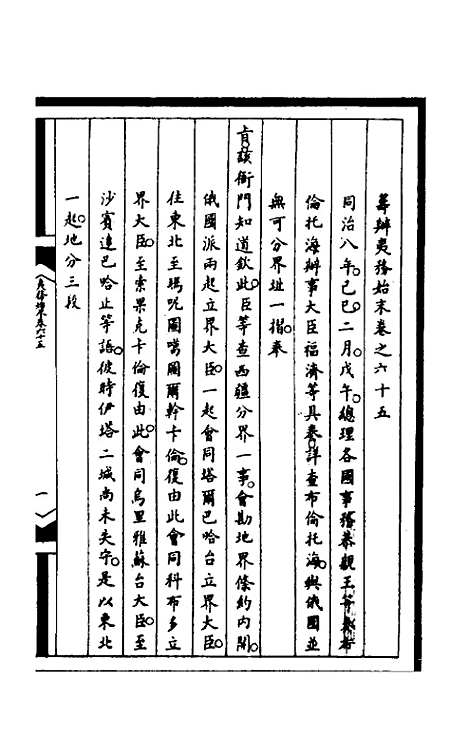 籌辦夷務始末卷之六十五
同治八年。己巳。二月。戊午。總理各國事務恭親王等奏。前
倫托海辦事大臣福濟等具奏。詳查布倫托海。與俄國並
無可分界址一摺。奉
旨。該衙門知道。欽此。臣等查西疆分界一事。會勘地界條約內開。
俄國派兩起立界大臣。一起會同塔爾巴哈台立界大臣。
往東北至瑪呢圖噶圖爾幹卡倫。復由此會同科布多立
界大臣。至索果克卡倫。復由此。會同烏里雅蘇台大臣。至
沙賓達巴哈止等語。彼時伊塔二城尚未失守。是以東北
一起。地分三段
夷務始末卷六十五
一